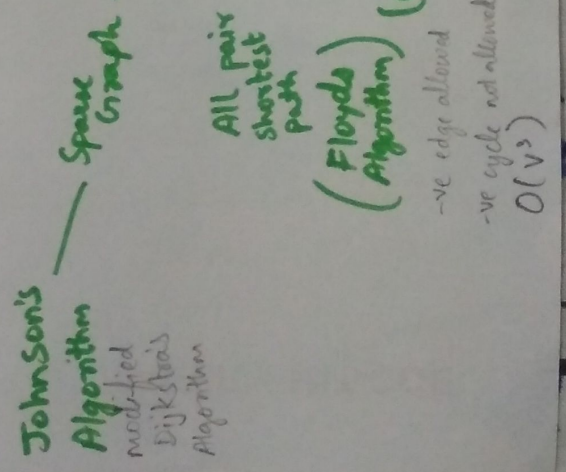 Johnson's
Algorithm
modified
Dijkstra's
Algorithm
Sparse
Graph
All pair
shortest
path
(Floyds
Algorithm)
-ve edge allowed
-ve cycle not allowed
O(V³)